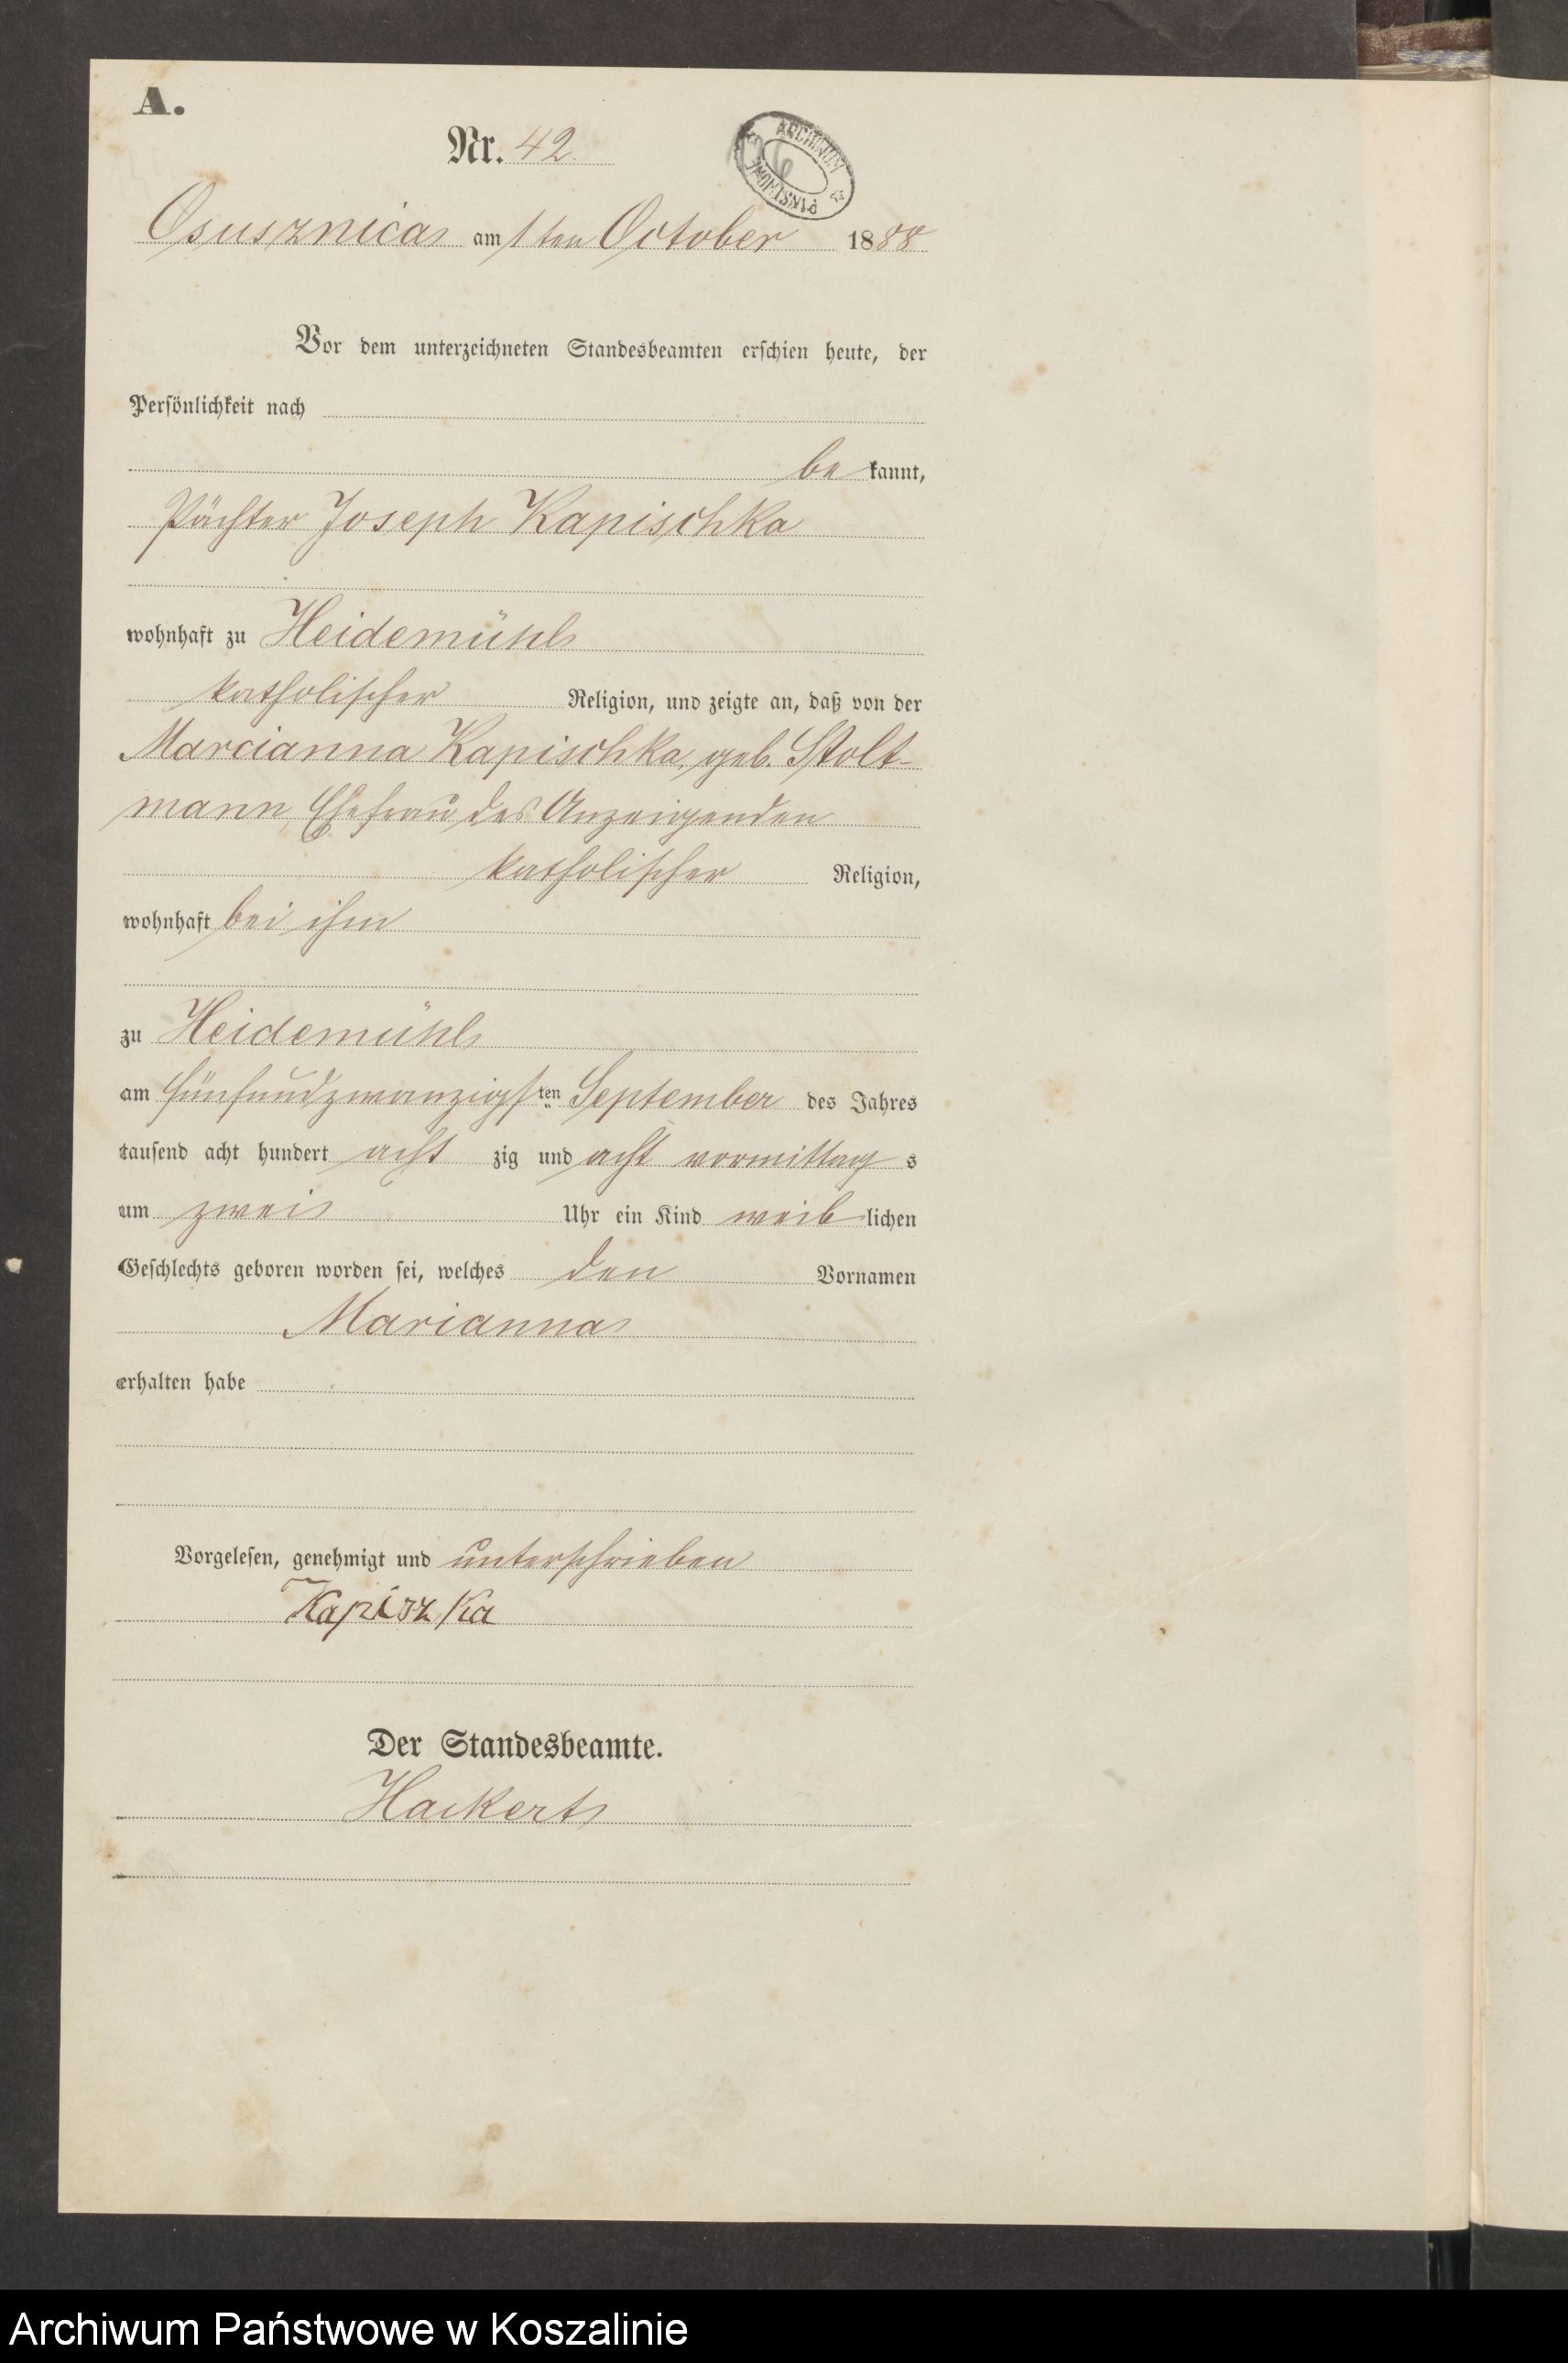 A.
Nr. 42.
ARCHIWUM PAŃSTWOWE
Osusznica am 1ten October 1888
Vor dem unterzeichneten Standesbeamten erschien heute, der
Persönlichkeit nach
be kannt,
Pächter Joseph Kapischka
wohnhaft zu Heidemühl
katholischer Religion, und zeigte an, daß von der
Marcianna Kapischka, geb. Stolt-
mann Ehefrau des Anzeigenden
katholischer Religion,
wohnhaft bei ihm
zu Heidemühl
am fünfundzwanzigsten September des Jahres
tausend acht hundert acht zig und acht vormittag s
um zwei Uhr ein Kind weib lichen
Geschlechts geboren worden sei, welches den Vornamen
Marianna
erhalten habe
Vorgelesen, genehmigt und unterschrieben
Kapiszka
Der Standesbeamte.
Hackert
Archiwum Państwowe w Koszalinie